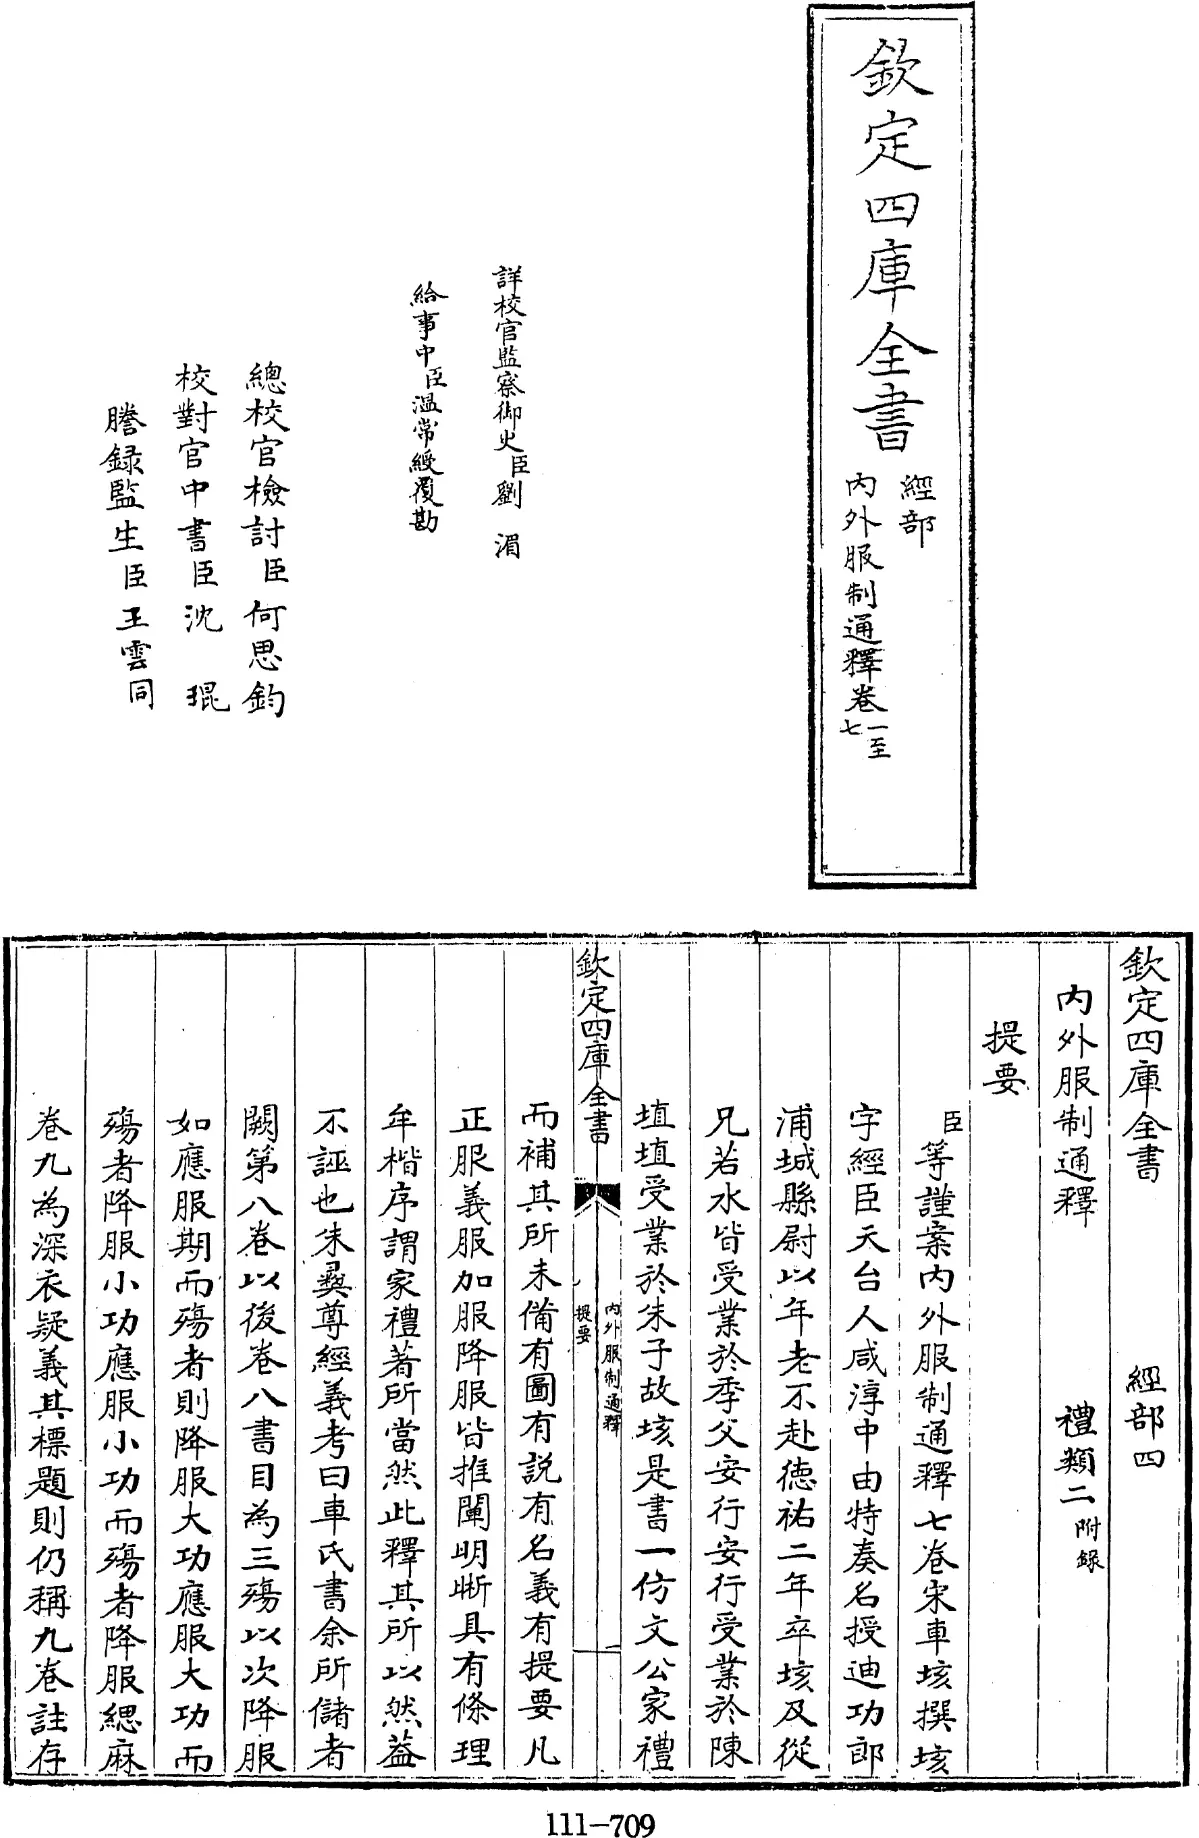 欽定四庫全書
經部
內外服制通釋卷一至七
詳校官監察御史臣劉湄
給事中臣溫常綬覆勘
總校官檢討臣何思鈞
校對官中書臣沈琨
謄録監生臣王雲同
欽定四庫全書 經部四
內外服制通釋 禮類二附録
提要
臣等謹案內外服制通釋七卷宋車垓撰垓
字經臣天台人咸淳中由特奏名授迪功郎
浦城縣尉以年老不赴德祐二年卒垓及從
兄若水皆受業於季父安行安行受業於陳
埴埴受業於朱子故垓是書一仿文公家禮
欽定四庫全書
內外服制通釋
提要
一
而補其所未備有圖有説有名義有提要凡
正服義服加服降服皆推闡明晰具有條理
牟楷序謂家禮著所當然此釋其所以然葢
不誣也朱彝尊經義考曰車氏書余所儲者
闕第八卷以後卷八書目為三殤以次降服
如應服期而殤者則降服大功應服大功而
殤者降服小功應服小功而殤者降服緦麻
卷九為深衣疑義其標題則仍稱九卷註存
111-709